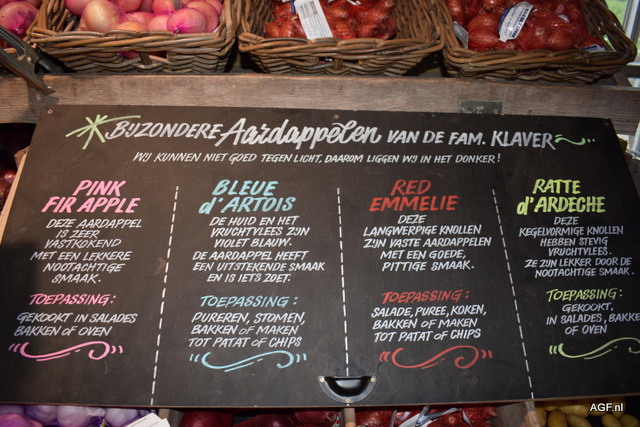 BIJZONDERE Aardappelen VAN DE FAM. KLAVER
WIJ KUNNEN NIET GOED TEGEN LICHT, DAAROM LIGGEN WIJ IN HET DONKER!
PINK
FIR APPLE
DEZE AARDAPPEL
IS ZEER
VASTKOKEND
MET EEN LEKKERE
NOOTACHTIGE
SMAAK.
TOEPASSING:
GEKOOKT IN SALADES
BAKKEN OF OVEN
BLEUE
d'ARTOIS
DE HUID EN HET
VRUCHTVLEES ZIJN
VIOLET BLAUW.
DE AARDAPPEL HEEFT
EEN UITSTEKENDE SMAAK
EN IS IETS ZOET.
TOEPASSING:
PUREREN, STOMEN,
BAKKEN OF MAKEN
TOT PATAT OF CHIPS
RED
EMMELIE
DEZE
LANGWERPIGE KNOLLEN
ZIJN VASTE AARDAPPELEN
MET EEN GOEDE,
PITTIGE SMAAK.
TOEPASSING:
SALADE, PUREE, KOKEN,
BAKKEN OF MAKEN
TOT PATAT OF CHIPS
RATTE
d'ARDECHE
DEZE
KEGELVORMIGE KNOLLEN
HEBBEN STEVIG
VRUCHTVLEES.
ZE ZIJN LEKKER DOOR DE
NOOTACHTIGE SMAAK.
TOEPASSING:
GEKOOKT,
IN SALADES, BAKKE
OF OVEN
AGF.nl